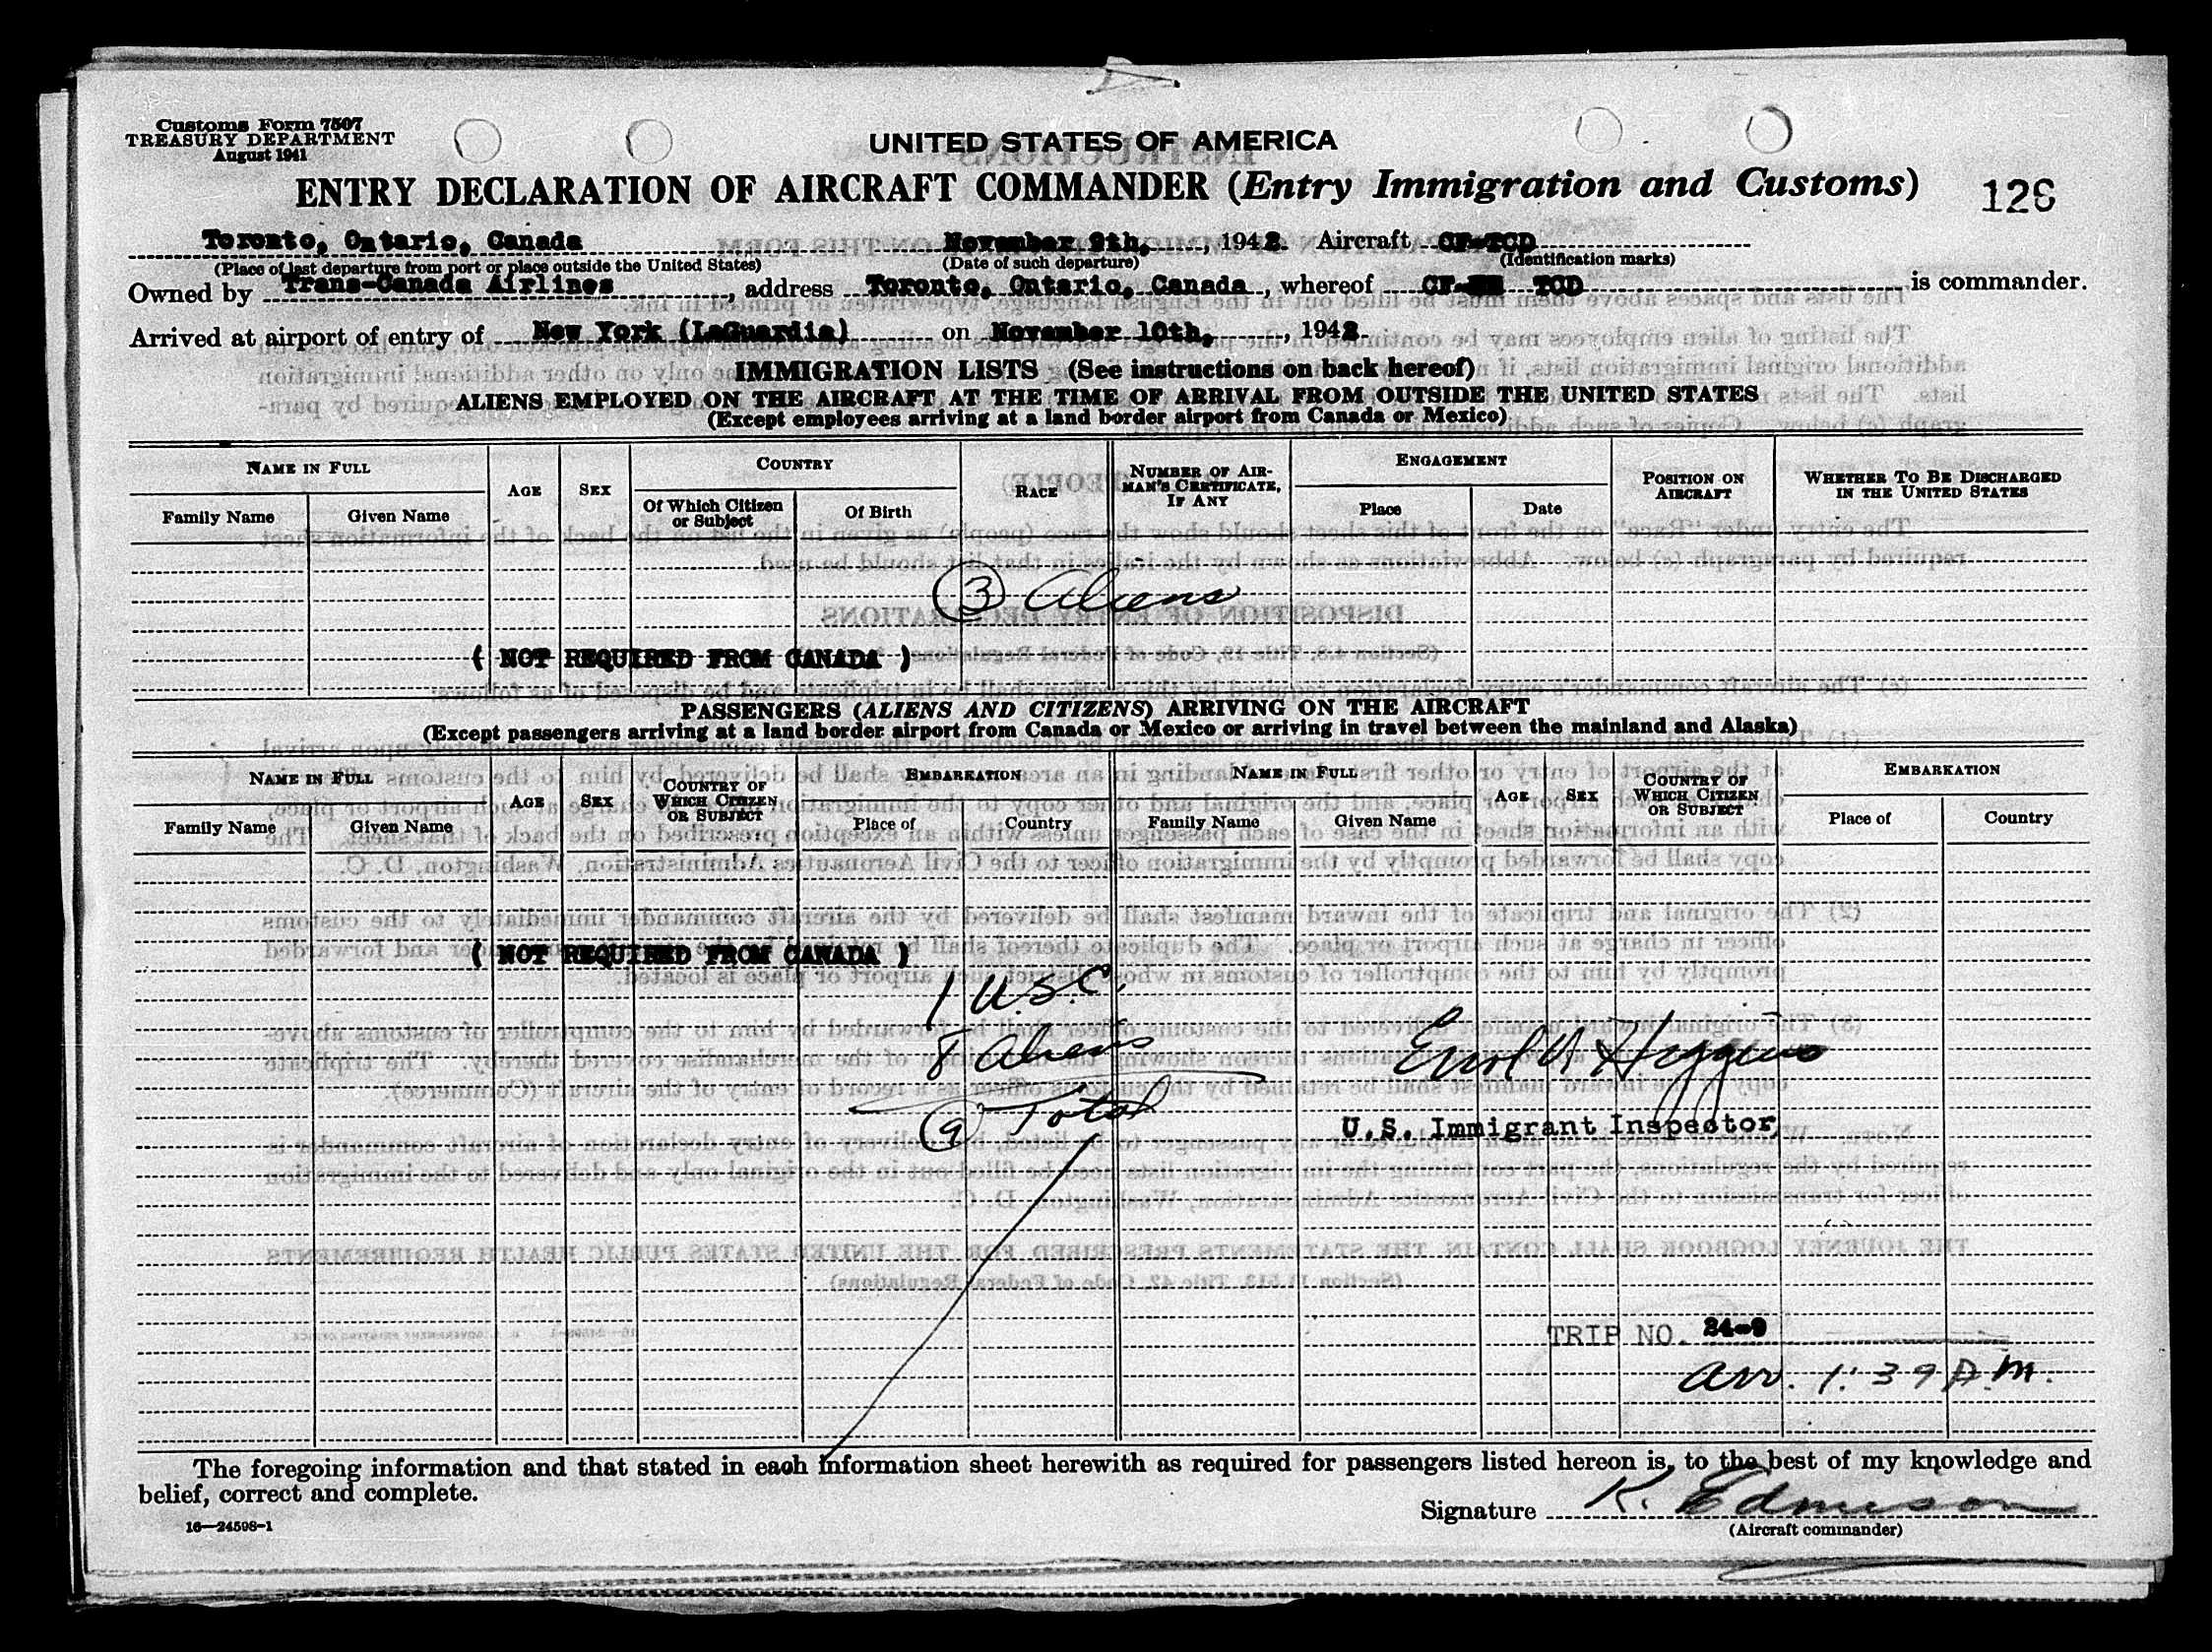 Customs Form 7507
TREASURY DEPARTMENT
August 1941
UNITED STATES OF AMERICA
ENTRY DECLARATION OF AIRCRAFT COMMANDER (Entry Immigration and Customs)
126
Toronto, Ontario, Canada November 9th, , 1942. Aircraft CF-TCD
(Place of last departure from port or place outside the United States) (Date of such departure) (Identification marks)
Owned by Trans-Canada Airlines , address Toronto, Ontario, Canada , whereof CF- TCD is commander.
Arrived at airport of entry of New York (LaGuardia) on November 10th, , 1942.
IMMIGRATION LISTS (See instructions on back hereof)
ALIENS EMPLOYED ON THE AIRCRAFT AT THE TIME OF ARRIVAL FROM OUTSIDE THE UNITED STATES
(Except employees arriving at a land border airport from Canada or Mexico)
NAME IN FULL AGE SEX COUNTRY RACE NUMBER OF AIR-MAN'S CERTIFICATE, IF ANY ENGAGEMENT POSITION ON AIRCRAFT WHETHER TO BE DISCHARGED IN THE UNITED STATES
Family Name Given Name Of Which Citizen or Subject Of Birth Place Date
3 Aliens
( NOT REQUIRED FROM CANADA )
PASSENGERS (ALIENS AND CITIZENS) ARRIVING ON THE AIRCRAFT
(Except passengers arriving at a land border airport from Canada or Mexico or arriving in travel between the mainland and Alaska)
NAME IN FULL AGE SEX COUNTRY OF WHICH CITIZEN OR SUBJECT EMBARKATION NAME IN FULL AGE SEX COUNTRY OF WHICH CITIZEN OR SUBJECT EMBARKATION
Family Name Given Name Place of Country Family Name Given Name Place of Country
( NOT REQUIRED FROM CANADA )
1 U.S.C.
8 Aliens
9 Total
Higgins
U.S. Immigrant Inspector
TRIP NO. 24-9
arr. 1:39 A.M.
The foregoing information and that stated in each information sheet herewith as required for passengers listed hereon is, to the best of my knowledge and
belief, correct and complete.
Signature K. Edmison
16—24598-1
(Aircraft commander)